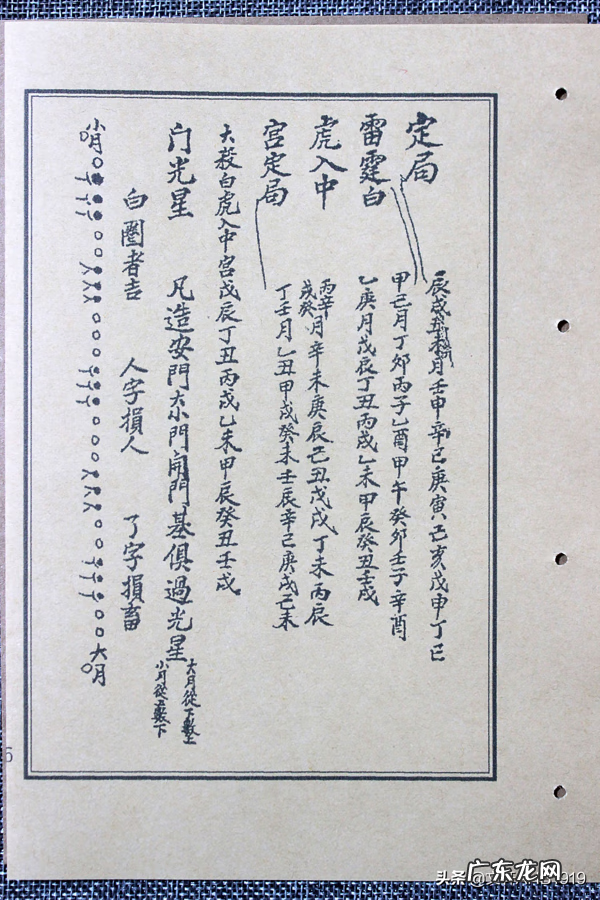 定局
辰戌丑未月壬申辛巳庚寅己亥戊申丁巳
雷霆白
甲己月丁卯丙子乙酉甲午癸卯壬子辛酉
乙庚月戊辰丁丑丙戌乙未甲辰癸丑壬戌
虎入中
丙辛
戊癸月辛未庚辰己丑戊戌丁未丙辰
宫定局
丁壬月乙丑甲戌癸未壬辰辛巳庚戌己未
大殺白虎入中宮戊辰丁丑丙戌乙未甲辰癸丑壬戌
门光星 凡造安門大小門閗門基俱過光星
大月從下數上
小月從上數下
白圈者吉 人字損人 了字損畜
小月
大月
5
头条
919
广东龙网